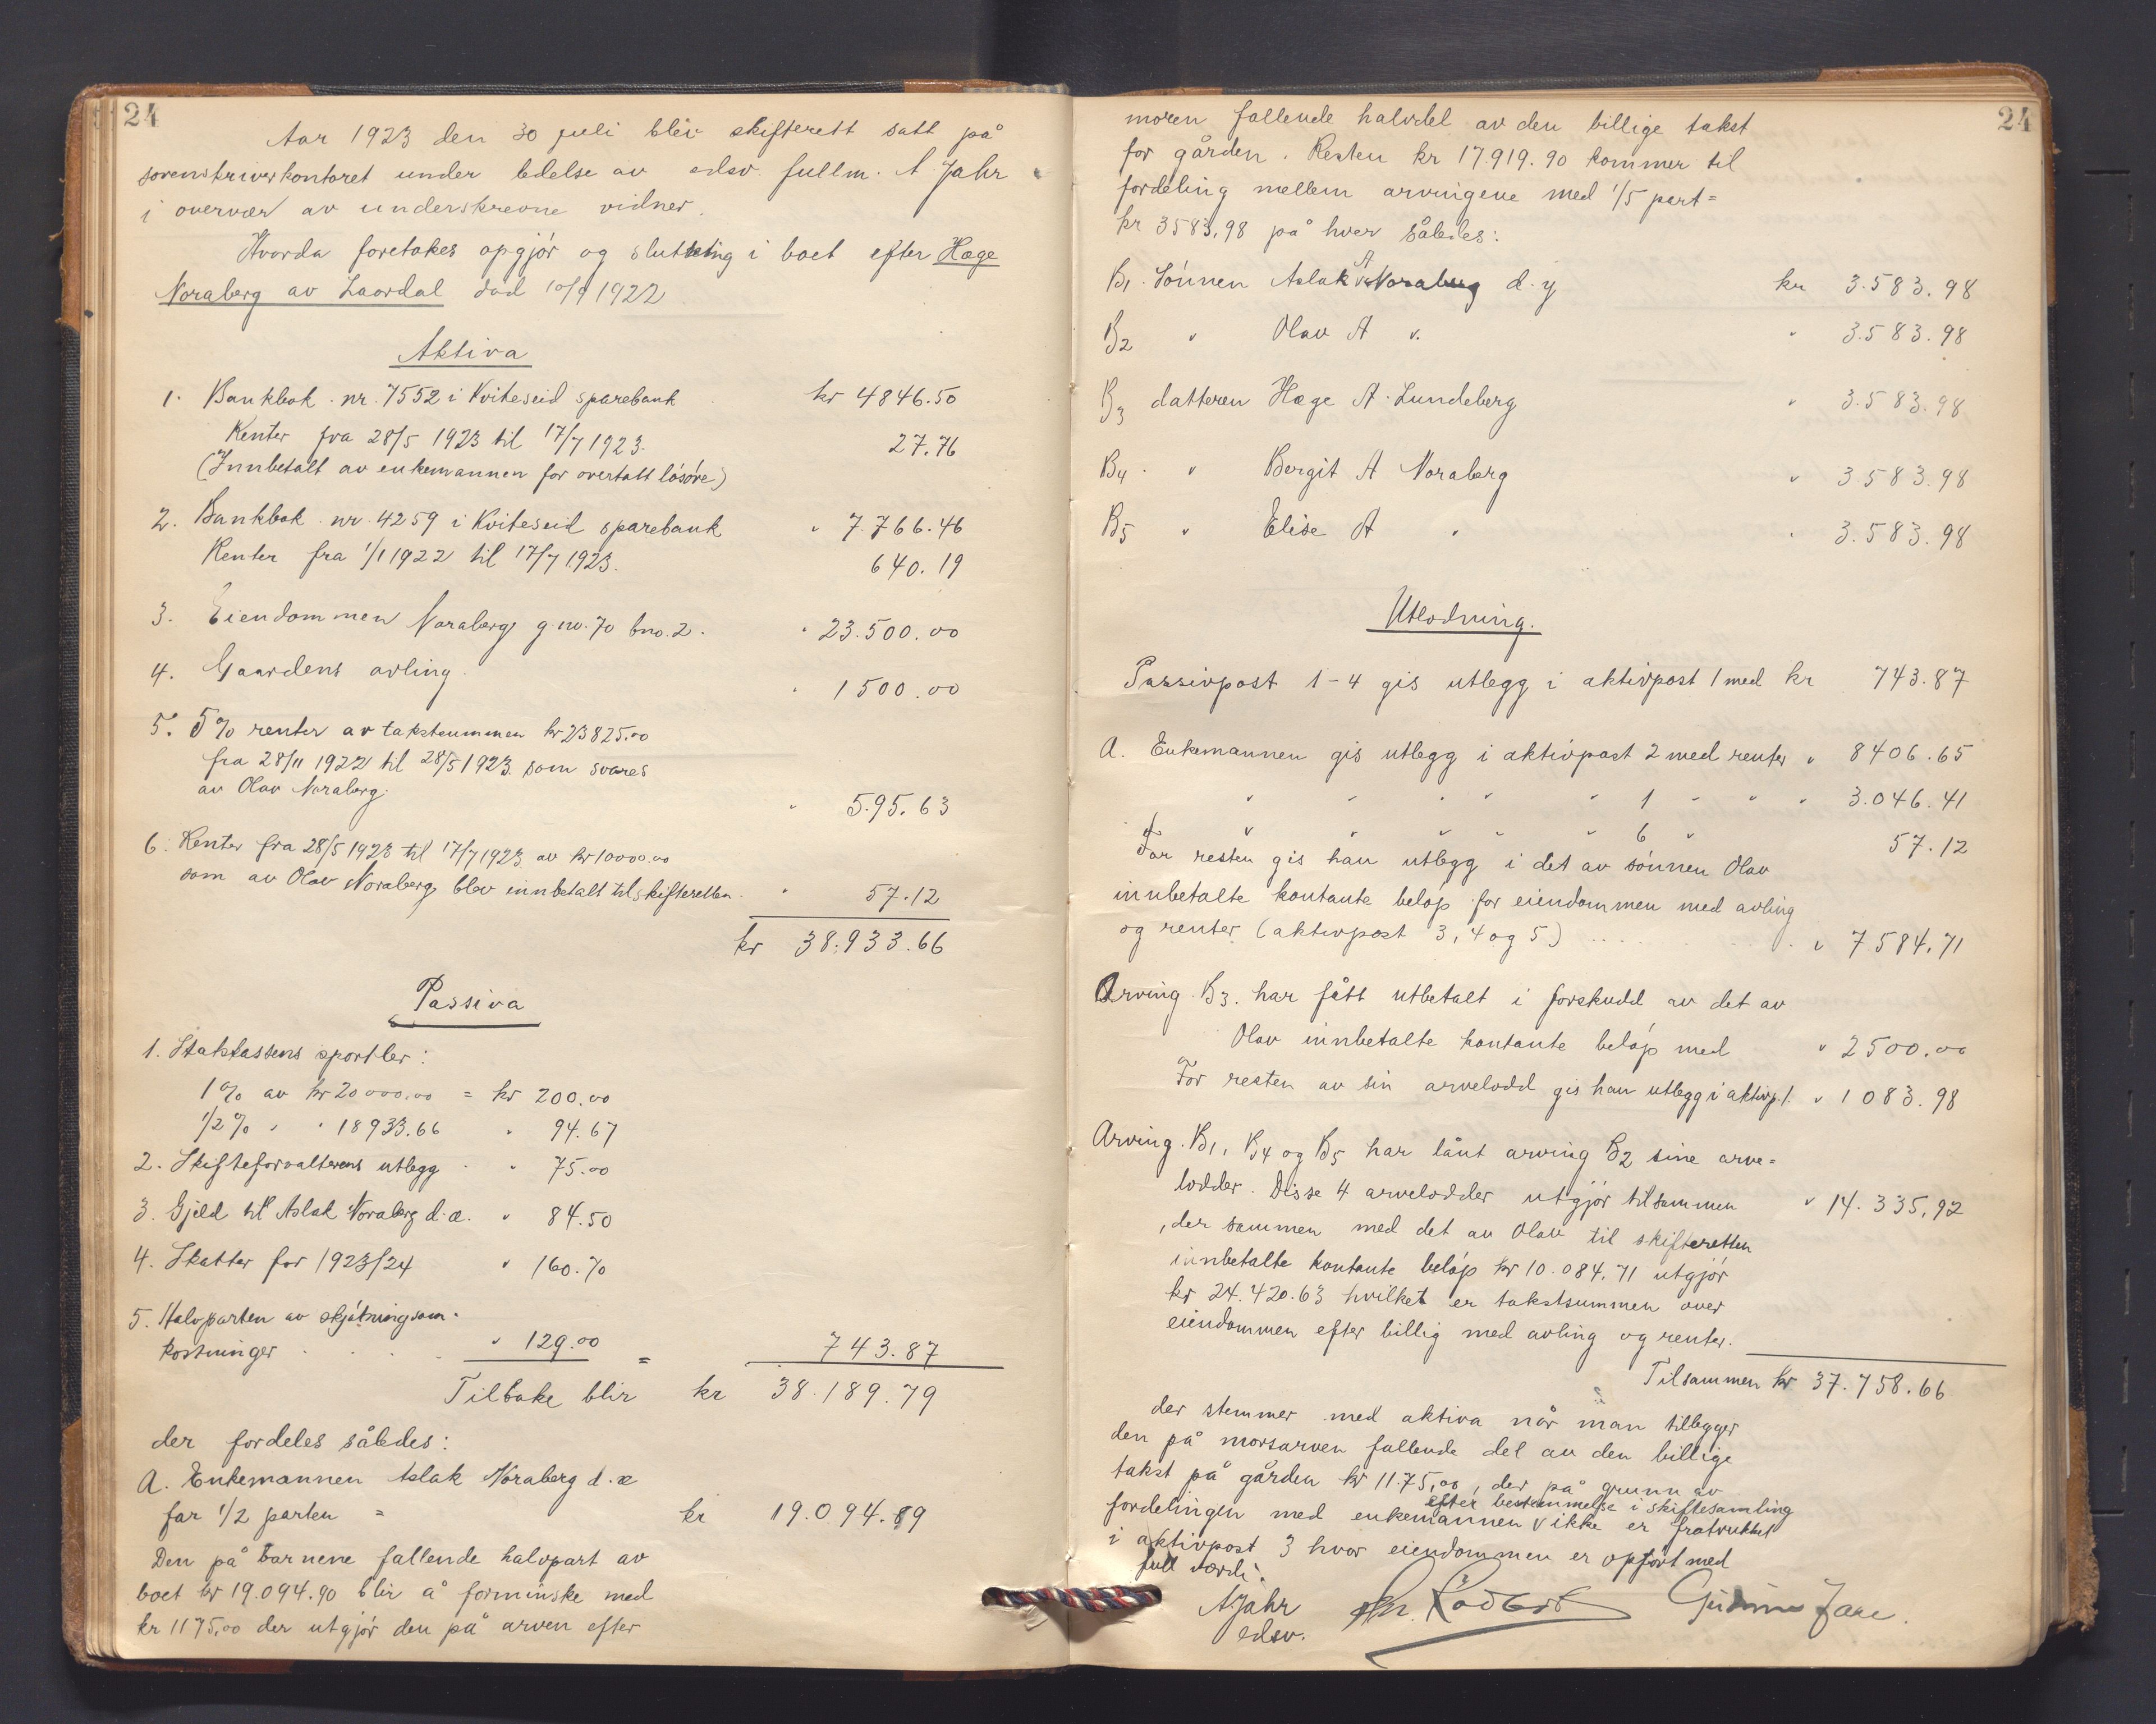 24
Aar 1923 den 30 juli blev skifterett satt på
sorenskriverkontoret under ledelse av edsv. fullm. A Jahr
i overvær av underskrevne vidner.
Hvorda foretokes opgjör og slutning i boet efter Hæge
Noraberg av Laardal död 10/9 1922
Aktiva
1. Bankbok nr. 7552 i Kviteseid sparebank kr 4846.50
Renter fra 28/5 1923 til 17/7 1923. 27.76
(Innbetalt av enkemannen for overtatt lösöre)
2. Bankbok nr. 4259 i Kviteseid sparebank " 7.766.46
Renter fra 1/1 1922 til 17/7 1923. 640.19
3. Eiendommen Noraberg g.no. 70 bno. 2. " 23.500.00
4. Gaardens avling " 1500.00
5. 5% renter av takstsummen kr 23825.00
fra 28/11 1922 til 28/5 1923 som svares
av Olav Noraberg. " 595.63
6. Renter fra 28/5 1923 til 17/7 1923 av kr 10000.00
som av Olav Noraberg blev innbetalt til skifteretten. " 57.12
kr 38.933.66
Passiva
1. Statskassens sportler:
1% av kr 20000.00 = kr 200.00
1/2% " " 18933.66 " 94.67
2. Skifteforvalterens utlegg " 75.00
3. Gjeld til Aslak Noraberg d.æ. " 84.50
4. Skatter for 1923/24 " 160.70
5. Halvparten av skjötningsom-
kostninger " 129.00 = 743.87
Tilbake blir kr 38.189.79
der fordeles således:
A. Enkemannen Aslak Noraberg d.æ
far 1/2 parten = kr 19.094.89
Den på barnene fallende halvpart av
boet kr 19.094.90 blir å forminske med
kr 1175.00 der utgjör den på arven efter
24
moren fallende halvdel av den billige takst
for gården. Resten kr 17.919.90 kommer til
fordeling mellem arvingene med 1/5 part =
kr 3583.98 på hver således:
B1. Sönnen Aslak A Noraberg d.y kr 3.583.98
B2 " Olav A " " 3.583.98
B3 datteren Hæge A. Lundeberg " 3.583.98
B4 " Bergit A Noraberg " 3.583.98
B5 " Elise A " " 3.583.98
Utlodning.
Passivpost 1-4 gis utlegg i aktivpost 1 med kr 743.87
A. Enkemannen gis utlegg i aktivpost 2 med renter " 8406.65
" " " " " 1 " " " 3.046.41
" " " " " 6 " 57.12
For resten gis han utlegg i det av sönnen Olav
innbetalte kontante belöp for eiendommen med avling
og renter (aktivpost 3, 4 og 5) " 7584.71
Arving B3. har fått utbetalt i forskudd av det av
Olav innbetalte kontante belöp med " 2500.00
For resten av sin arvelodd gis han utlegg i aktivp. 1. " 1083.98
Arving. B1, B4 og B5 har lånt arving B2 sine arve-
lodder. Disse 4 arvelodder utgjör tilsammen " 14.335.92
, der sammen med det av Olav til skifteretten
innbetalte kontante belöp kr 10.084.71 utgjör
kr 24.420.63 hvilket er takstsummen over
eiendommen efter billig med avling og renter.
Tilsammen kr 37.758.66
der stemmer med aktiva når man tillegger
den på morsarven fallende del av den billige
takst på gården kr 1175,00, der på grunn av
efter bestemmelse i skiftesamling
fordelingen med enkemannen v ikke er fratrukket
i aktivpost 3 hvor eiendommen er opfört med
full værdi.
A Jahr
edsv.